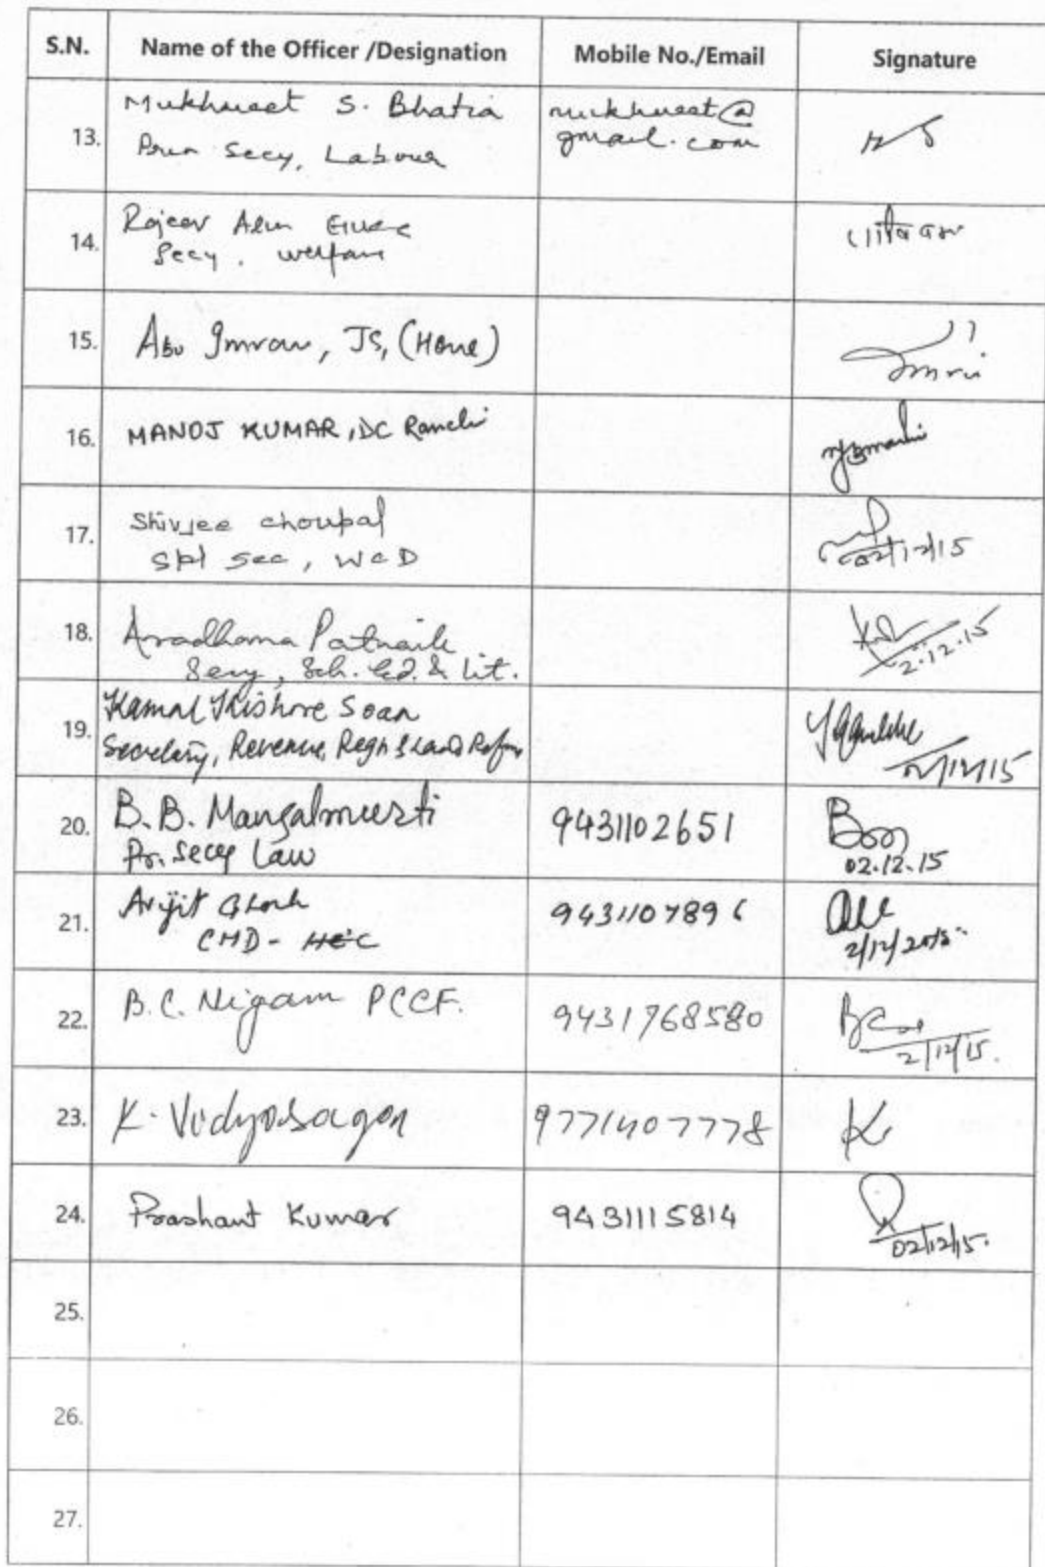 S.N. Name of the Officer /Designation Mobile No./Email Signature
13. Mukhmeet S. Bhatia mukhmeet@
Prin Secy, Labour gmail.com
14. Rajeev Arun Ekka
Secy. Welfare
15. Abu Imran, JS, (Home)
16. MANOJ KUMAR, DC Ranchi
17. Shivjee choupal
Spl Sec, WCD 02/12/15
18. Aradhana Patnaik
Secy, Sch. Ed. & Lit. 2.12.15
19. Kamal Kishore Soan
Secretary, Revenue, Regn & Land Refms 02/12/15
20. B.B. Mangalmurti 9431102651
Pr. Secy Law 02.12.15
21. Arijit Ghosh 9431107896
CMD - HEC 2/12/2015
22. B.C. Nigam PCCF. 9431768580
2/12/15.
23. K. Vidyasagar 9771407778 K
24. Prashant Kumar 9431115814
02/12/15.
25.
26.
27.